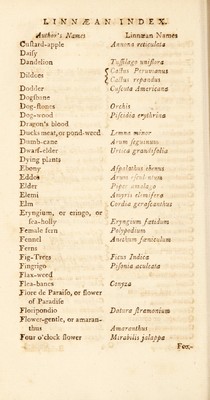 LINNÆAN INDEX.
Author's Names Linnæan Names
Custard-apple Annona reticulata
Daisy
Dandelion Tussilago uniflora
Dildoes { Cactus Peruvianus
Cactus repandus
Dodder Cuscuta Americana
Dogsbane
Dog-stones Orchis
Dog-wood Piscidia erythrina
Dragon's blood
Ducks meat, or pond-weed Lemna minor
Dumb-cane Arum seguinum
Dwarf-elder Urtica grandifolia
Dying plants
Ebony Aspalathus ebenus
Eddos Arum esculentum
Elder Piper amalago
Elemi Amyris elemifera
Elm Cordia gerascanthus
Eryngium, or eringo, or
sea-holly Eryngium fœtidum
Female fern Polypodium
Fennel Anethum fœniculum
Ferns
Fig-Trees Ficus Indica
Fingrigo Pisonia aculeata
Flax-weed
Flea-banes Conyza
Flore de Paraiso, or flower
of Paradise
Floripondio Datura stramonium
Flower-gentle, or amaran-
thus Amaranthus
Four o'clock flower Mirabilis jalappa
Fox-